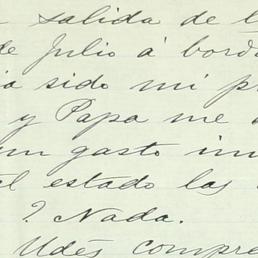 salida de l
de Julio á bordo
ia sido mi p
y Papa me
un gasto inu
el estado las
? Nada.
Udés compre